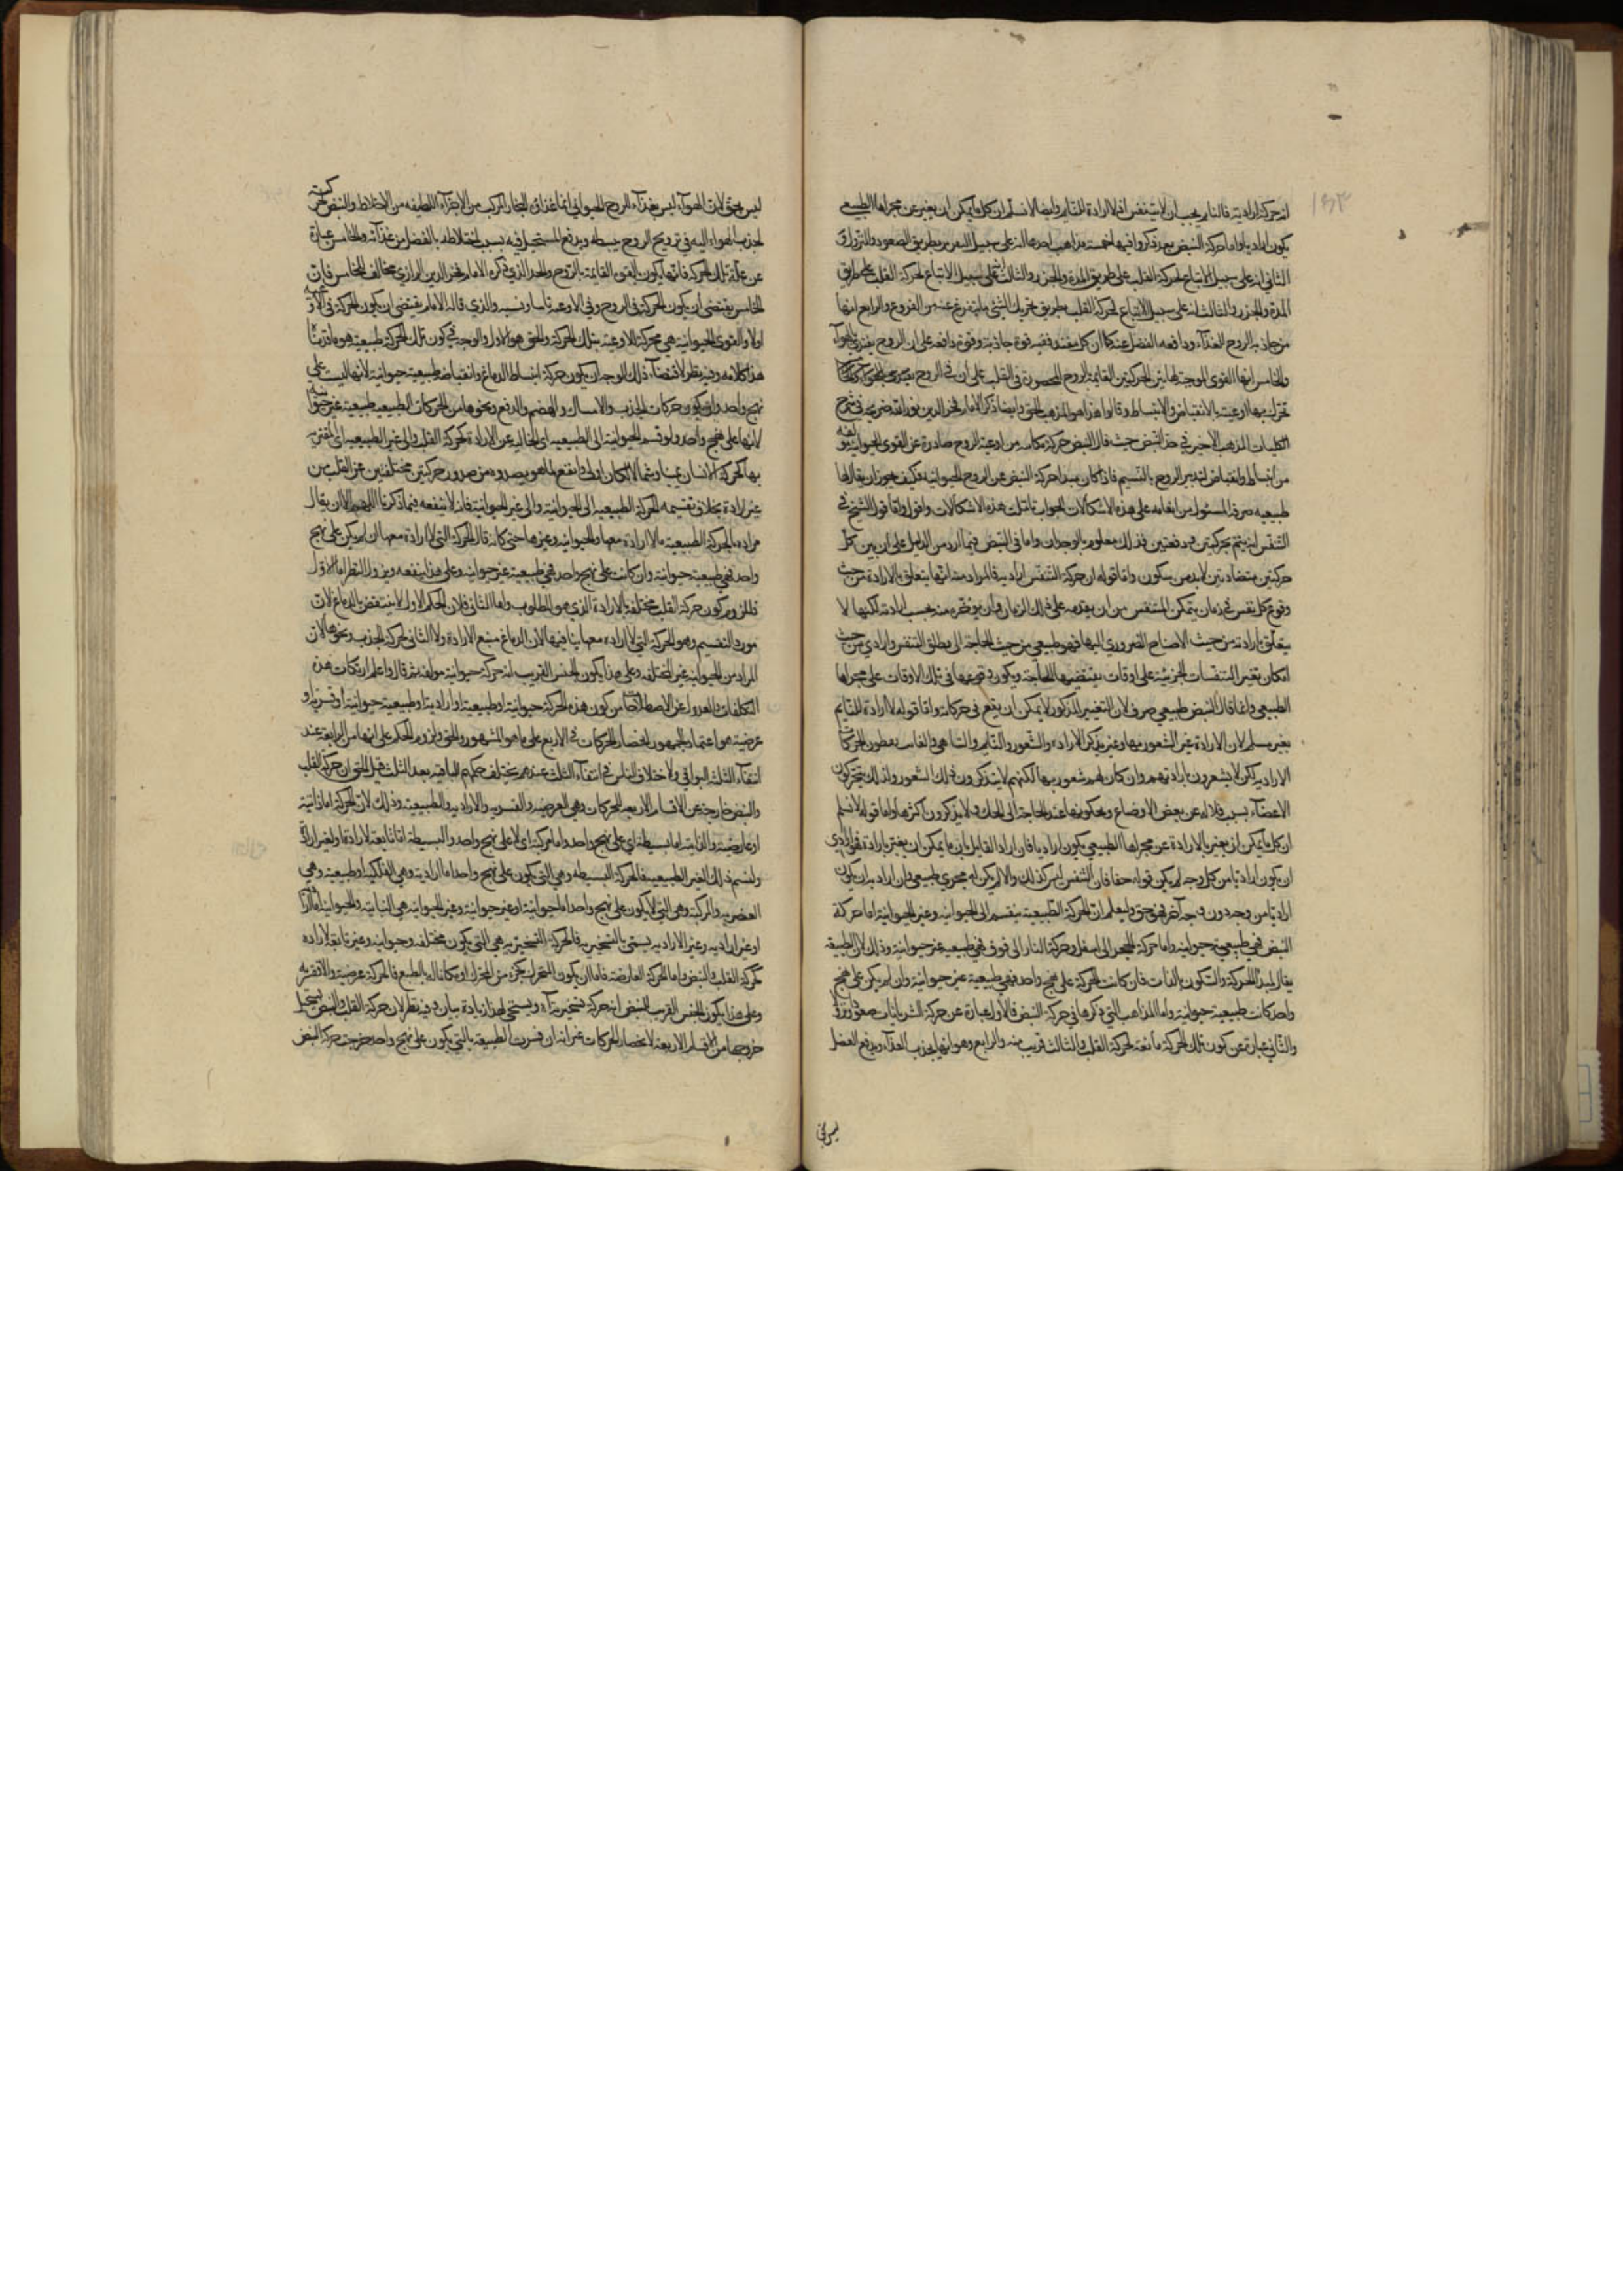 انه حركة ارادية فالنايم يجب ان لا يتنفس اذ لا ارادة للنايم وايضا لا نسلم ان كل ما يمكن ان يغير عن مجراها الطبيعي
يكون اراديا واما حركة النبض فقد ذكروا فيها خمسة مذاهب احدها انه على سبيل بطريق الصعود والنزول و
الثاني انه على سبيل الاتباع لحركة القلب على طريق المد والجزر والثالث انه على سبيل الاتباع لحركة القلب على طريق
المد والجزر والثالث انه على سبيل الاتباع لحركة القلب بطريق تحريك الشيء ما يتفرع عنه من الفروع والرابع انها
من جاذبة الروح الغذاء ودافعة الفضل عنه كما ان كل مغتذ ففيه قوة جاذبة وقوة دافعة على ان الروح يغتذي بالهواء
والخامس انها القوى الموجبة لهاتين الحركتين القايمة بالروح المحصورة في القلب على ان في الروح
تحرك بها اوعيته بالانقباض والانبساط وقالوا هذا هو المذهب الحق وايضا ذكر الامام فخر الدين في شرح
الكليات المذهب الاخير في حد النبض حيث قال النبض حركة مكانية من اوعية الروح صادرة عن القوى الحيوانية مؤلفة
من انبساط وانقباض لتدبير الروح بالنسيم فاذا كان مبدا حركة النبض عن الروح الحيوانية فكيف يجوز ان يقال انها
طبيعية صرفة المسئول من انعامه على هذه الاشكالات الجواب تاملت هذه الاشكالات واقول اما قول الشيخ في
التنفس انه يتم بحركتين ووقفتين فذلك معلوم بالوجدان واما في النبض فبما اورد من الدليل على ان بين كل
حركتين متضادتين لا بد من سكون واما قوله ان حركة التنفس ارادية فالمراد منه انها يتعلق بالارادة من حيث
وقوع كل نفس في زمان يتمكن المتنفس من ان يقدمه على ذلك الزمان وان يؤخره عنه بحسب ارادته لكنها لا
يتعلق بارادته من حيث الاحتياج الضروري اليها فهو طبيعي من حيث الحاجة الى مطلق التنفس وارادي من حيث
امكان تغير التنفسات الجزئية على اوقات يقتضيها الحاجة ويكون وقوعها في تلك الاوقات على مجراها
الطبيعي وانما قال النبض طبيعي صرف لان التغيير المذكور لا يمكن ان يقع في حركاته واما قوله لا ارادة للنايم
بغير مسلم لان الارادة غير الشعور بها وغير تذكر الارادة والشعور والنايم والساهي
الارادية لكن لا يشعرون بارادتهم وان كان لهم شعور بها لكنهم لا يتذكرون ذلك الشعور ولذلك يتحركون
الاعضاء بسبب ملاله عن بعض الاوضاع ويحكونها عند الحاجة الى الحك ولا يتذكرون اكثرها واما قوله لا نسلم
ان كل ما يمكن ان يغير بالارادة عن مجراها الطبيعي يكون اراديا فان اراد القايل بان ما يمكن ان يغير بارادة فهو ارادي
ان يكون اراديا من كل وجه لم يكن قوله حقا فان التنفس ليس كذلك والا لم يكن له مجرى طبيعي وان اراد به ان يكون
اراديا من وجه دون وجه آخر فهو حق وليعلم ان الحركة الطبيعية ينقسم الى الحيوانية وغير الحيوانية اما حركة
النبض فهي طبيعية حيوانية واما حركة الحجر الى اسفل وحركة النار الى فوق فهي طبيعية غير حيوانية وذلك لان الطبيعة
يقال لمبدا الحركة والسكون بالذات فان كانت الحركة على نهج واحد فهي طبيعية غير حيوانية وان لم يكن على نهج
واحد كانت طبيعية حيوانية واما المذاهب التي ذكرها في حركة النبض فالاول عبارة عن حركة الشريانات صعودا ونزولا
والثاني عبارة عن كون تلك الحركة تابعة لحركة القلب والثالث قريب منه والرابع وهو انها لجذب الغذاء ويدفع الفضل
ليس بحق
ليس بحق لان الهواء ليس بغذاء الروح الحيواني انما غذاؤه البخار المركب من الاجزاء اللطيفة من الاخلاط والنبض حركته
لجذب الهواء اليه في ترويح الروح ببسطه ويدفع المستحيل فيه بسبب اختلاطه بالفضل من غذائه والخامس عبارة
عن علة تلك الحركة فانها يكون بالقوى القايمة بالروح والحد الذي ذكره الامام فخر الدين الرازي مخالف للخامس فان
الخامس يقتضي ان يكون الحركة في الروح وفي الاوعية والذي قاله الامام يقتضي ان يكون الحركة في الاوعية
اولا والقوى الحيوانية هي محركة للاوعية بتلك الحركة والحق هو الاول والوجه في كون تلك الحركة طبيعية هو ما قدمنا
هذا كلامه وفيه نظر لاقتضاء ذلك الوجه ان يكون حركة انبساط الدماغ وانقباضه طبيعية حيوانية لانها ليست على
نهج واحد وان يكون حركات الجذب والامساك والهضم والدفع ونحوها من الحركات الطبيعية طبيعية غير حيوانية
لانها على نهج واحد ولو قسم الحيوانية الى الطبيعية اي الخالية عن الارادة كحركة القلب والى غير الطبيعية اي المقترنة
بها كحركة الانسان يمينا وشمالا لكان اولى وانفع لما هو بصدده من صدور حركتين مختلفتين عن القلب من
غير ارادة بخلاف تقسيمه الحركة الطبيعية الى الحيوانية والى غير الحيوانية فانه لا ينفعه فيما ذكرنا اللهم الا ان يقال
مراده بالحركة الطبيعية ما لا ارادة معها والحيوانية وغيرها حتى كانه قال الحركة التي لا ارادة معها ان لم يكن على نهج
واحد فهي طبيعية حيوانية وان كانت على نهج واحد فهي طبيعية غير حيوانية وعلى هذا ينفعه ويزول النظر اما الاول
فللزوم كون حركة القلب مختلفة بلا ارادة الذي هو المطلوب واما الثاني فلان الحكم الاول لا ينتقض بالدماغ لان
مورد التقسيم وهو الحركة التي لا ارادة معها ينافيها لان الدماغ منبع الارادة ولا الثاني لحركة الجذب ونحوها لان
المراد من الحيوانية غير المختلفة وعلى هذا يكون الجنس القريب انه حركة حيوانية مؤلفة ثم قال واعلم ان ركات هذه
التكلفات والعدول عن الاصطلاحات من كون هذه الحركة حيوانية او طبيعية او ارادية او طبيعية حيوانية او قسرية او
عرضية هو اعتماد الجمهور انحصار الحركات في الاربع على ما هو المشهور والحق ولزوم الحكم على انها من الرابعة عند
انتفاء الثلث البواقي ولاختلاف الناس في انتفاء الثلث عندهم يختلف حكمهم الباقية بعد الثلث قيل الحق ان حركة القلب
والنبض خارجة عن الاقسام الاربعة للحركات وهي العرضية والقسرية والارادية والطبيعية وذلك لان الحركة اما ذاتية
او عارضية والذاتية اما بسيطة اي على نهج واحد واما مركبة اي لا على نهج واحد والبسيطة اما تابعة لارادة او لغير ارادة
ولنسم ذلك الغير الطبيعية فالحركة البسيطة وهي التي يكون على نهج واحد اما ارادية وهي الفلكية او طبيعية وهي
العنصرية والمركبة وهي التي لا يكون على نهج واحد اما حيوانية او غير حيوانية وغير الحيوانية هي النباتية والحيوانية اما ارادية
او غير ارادية وغير الارادية يسمى بالتسخيرية فالحركة التسخيرية هي التي يكون مختلفة وحيوانية وغير تابعة لارادة
كحركة القلب والنبض واما الحركة العارضة فاما ان يكون المتحرك بجزء من المحرك او مكانا له بالطبع فالحركة عرضية والا قسرية
وعلى هذا يكون الجنس القريب للنبض انه حركة تسخيرية وسيجيء لهذا زيادة بيان وفيه نظر لان حركة القلب والنبض يستحيل
خروجها من الاقسام الاربعة لانحصار الحركات غير انه ان فسرت الطبيعية بالتي يكون على نهج واحد خرجت حركة النبض